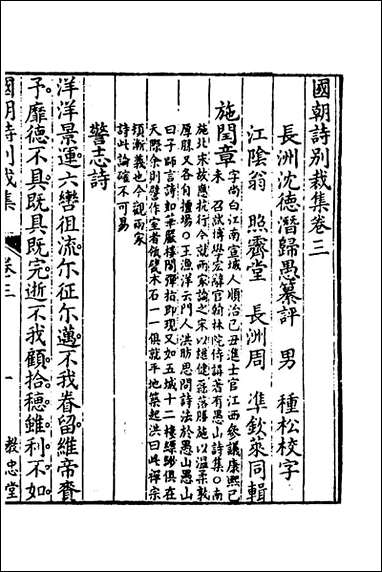 國朝詩別裁集卷三
長洲沈德潛歸愚纂評　男　種松校字
江陰翁　照霽堂　長洲周　準欽萊同輯
施閏章字尚白江南宣城人順治己丑進士官江西參議康熙己
未　召試博學宏辭官翰林院侍講著有愚山詩集○南
施北宋故應抗行今就兩家論之宋以雄健磊落勝施以溫柔敦
厚勝又各自擅場○王漁洋云門人洪昉思問詩法於愚山愚山
曰子師言詩如華嚴樓閣彈指即現又如五城十二樓縹緲俱在
天際余則譬作室者瓴甓木石一一俱就平地築起洪曰此禪宗
頓漸義也今觀兩家
詩此論確不可易
警志詩
洋洋景運六轡徂流尓征尓邁不我眷留維帝賚
予靡德不具既具既完逝不我顧拾穗雖利不如
國朝詩別裁集　卷三　一　教忠堂